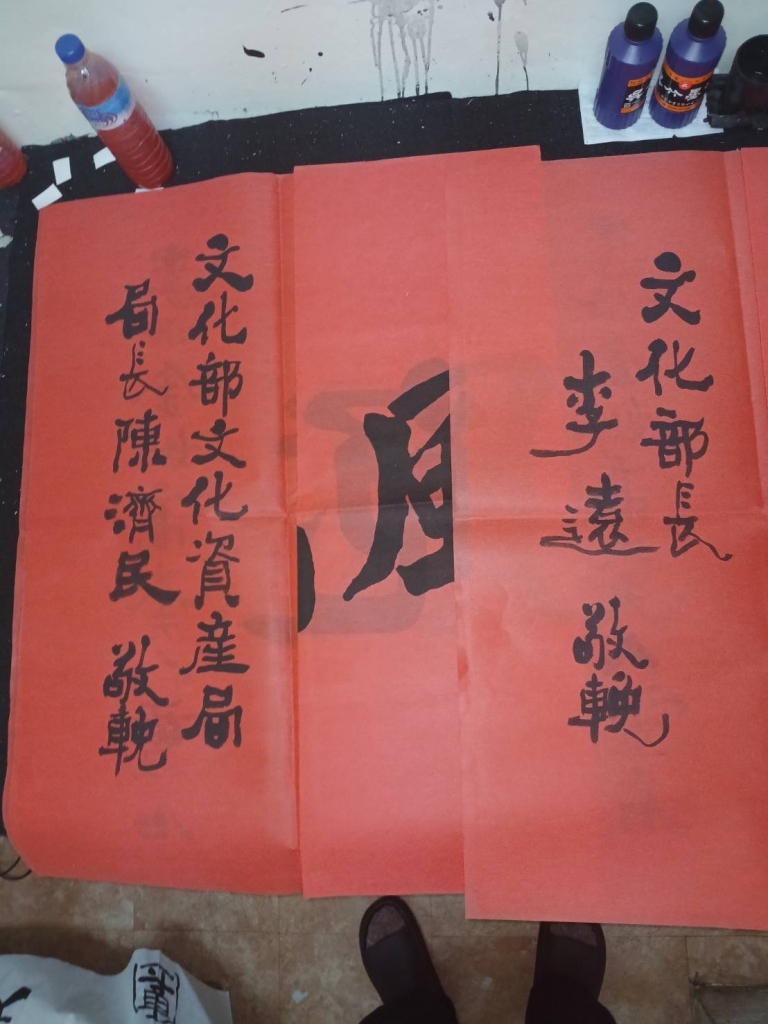 文化部長
李遠 敬輓
文化部文化資産局
局長陳濟民 敬輓